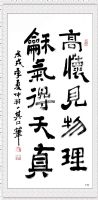 高懷見物理
龢氣得天真
戊戌季夏